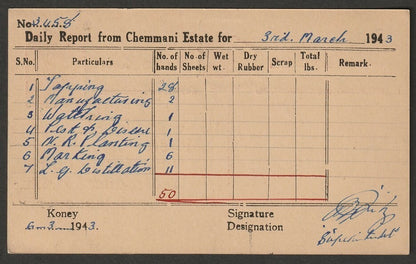 No 3458
Daily Report from Chemmani Estate for 3rd. March 1943
S.No. Particulars No. of hands No. of Sheets Wet wt. Dry Rubber Scrap Total lbs. Remark.
1 Tapping 28
2 Manufacturing 2
3 Watching 1
4 Pest & Disease 1
5 N. R. Planting 1
6 Marking 6
7 L. G. Distillation 11
50
Koney Signature
6-3-1943. Designation Superintendent